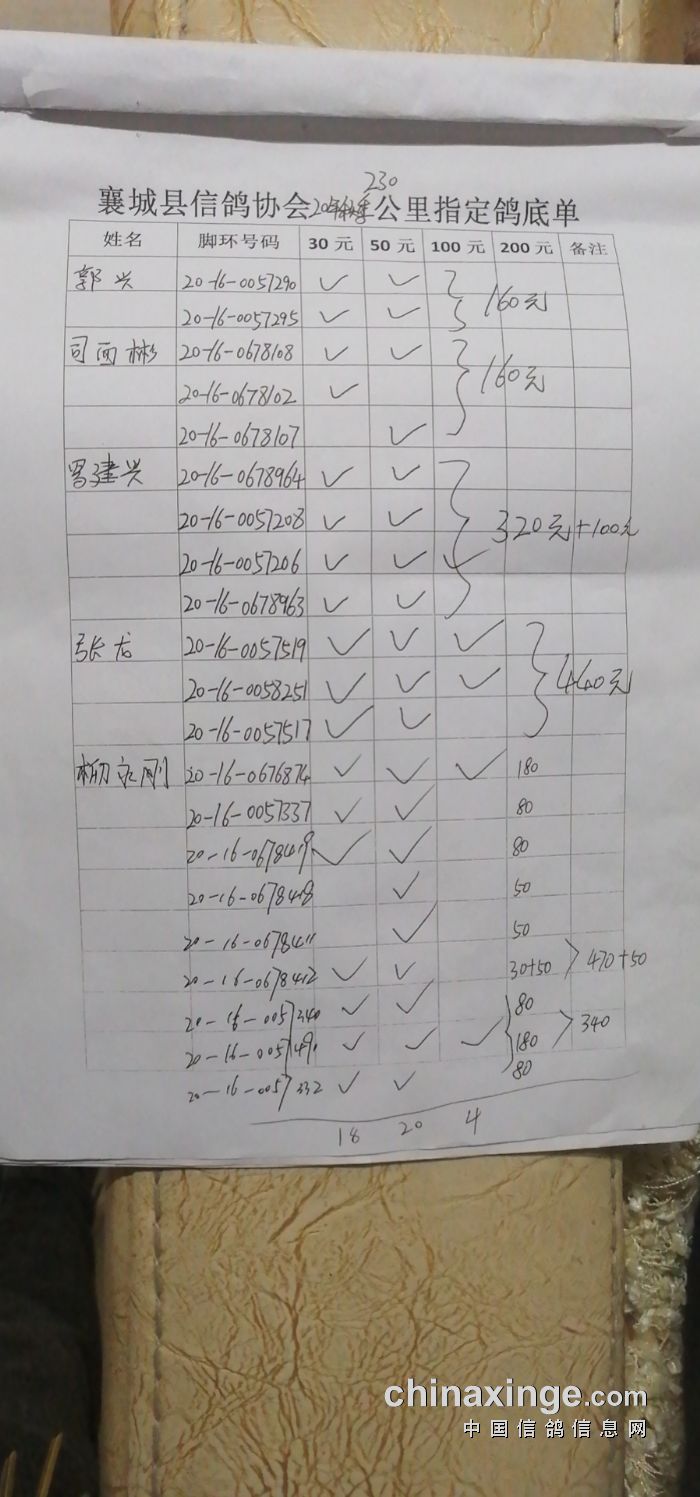 230
襄城县信鸽协会20年秋季公里指定鸽底单
姓名 脚环号码 30元 50元 100元 200元 备注
郭兴 20-16-0057290 ✓ ✓
20-16-0057295 ✓ ✓ 160元
司西彬 20-16-0678108 ✓ ✓
20-16-0678102 ✓ 160元
20-16-0678107 ✓
罗建兴 20-16-0678964 ✓ ✓
20-16-0057208 ✓ ✓ 320元+100元
20-16-0057206 ✓ ✓ ✓
20-16-0678963 ✓ ✓
张龙 20-16-0057519 ✓ ✓ ✓
20-16-0058251 ✓ ✓ ✓ 440元
20-16-0057517 ✓ ✓
柳永刚 20-16-0676874 ✓ ✓ ✓ 180
20-16-0057337 ✓ ✓ 80
20-16-0678419 ✓ ✓ 80
20-16-0678418 ✓ 50
20-16-0678411 ✓ 50
20-16-0678412 ✓ ✓ 30+50 470+50
20-16-0057340 ✓ ✓ 80
20-16-0057491 ✓ ✓ ✓ 180 340
20-16-0057332 ✓ ✓ 80
18 20 4
chinaxinge.com
中国信鸽信息网